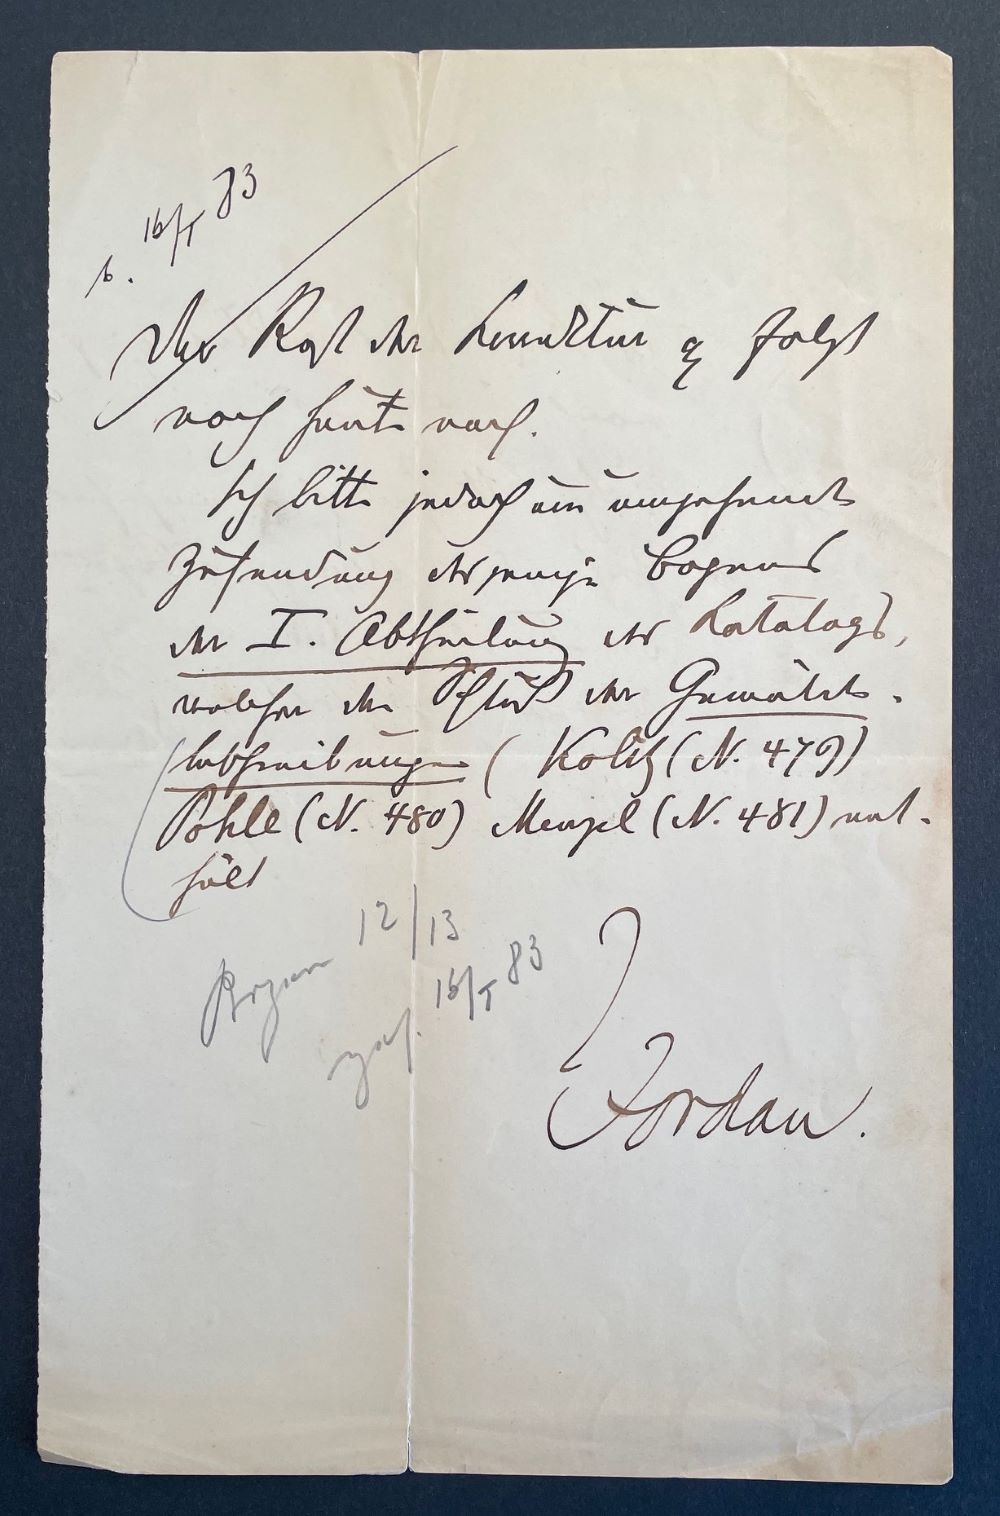 b. 16/5 83
Der Rest der Korrektur folgt
noch heute nach.
Ich bitte jedoch um umgehende
Zusendung desjenigen Bogens
der I. Abtheilung des Katalogs,
welcher den Schluß der Gemälde-
beschreibungen (Kolitz (N. 479)
Pohle (N. 480) Menzel (N. 481) ent-
hält
12/13
Bogen
16/5 83
Jordan.